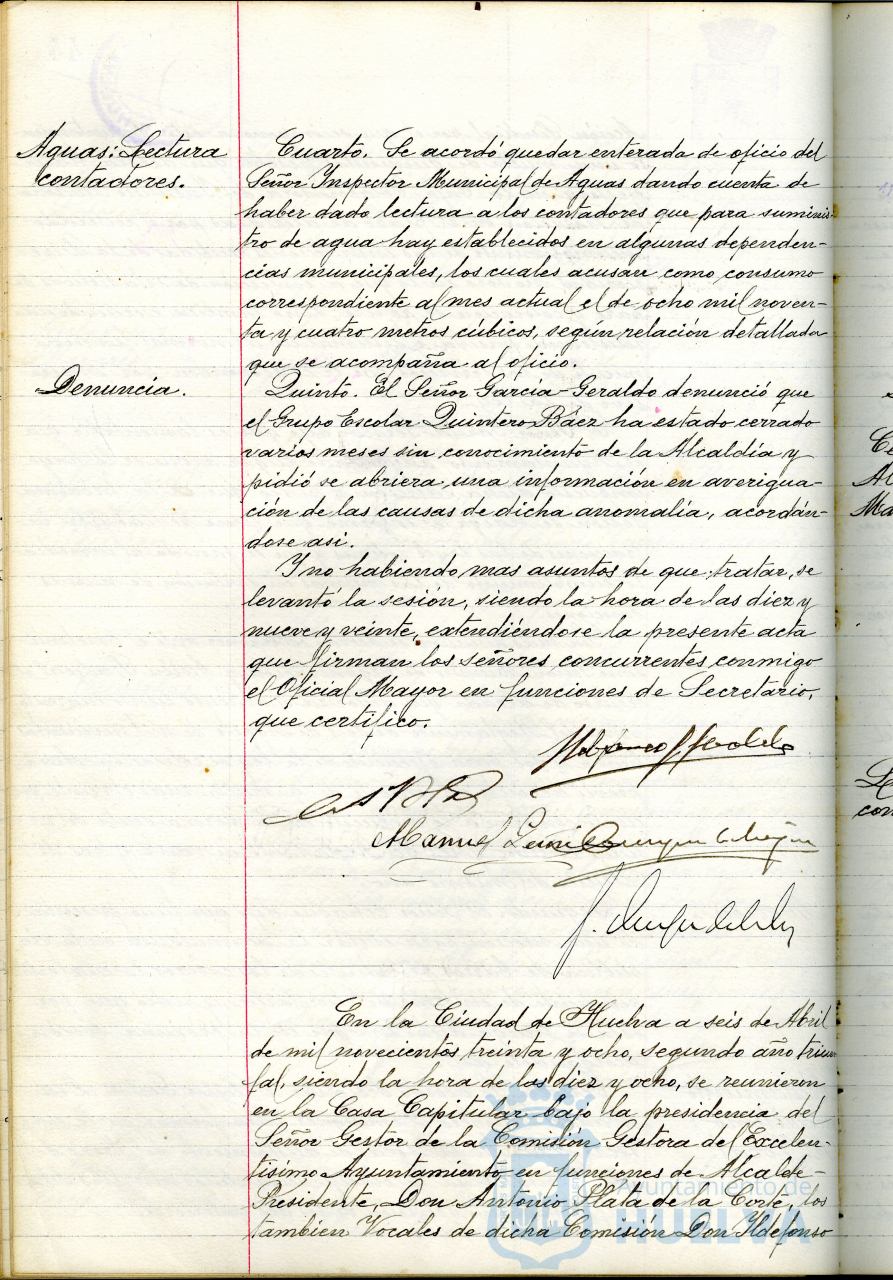 Aguas: Lectura
contadores.
Cuarto. Se acordó quedar enterada de oficio del
Señor Inspector Municipal de Aguas dando cuenta de
haber dado lectura a los contadores que para suminis-
tro de agua hay establecidos en algunas dependen-
cias municipales, los cuales acusan como consumo
correspondiente al mes actual el de ocho mil noven-
ta y cuatro metros cúbicos, según relación detallada
que se acompaña al oficio.
Denuncia.
Quinto. El Señor García-Geraldo denunció que
el Grupo Escolar Quintero Báez ha estado cerrado
varios meses sin conocimiento de la Alcaldía y
pidió se abriera una información en averigua-
ción de las causas de dicha anomalía, acordán-
dose así.
Y no habiendo mas asuntos de que tratar, se
levantó la sesión, siendo la hora de las diez y
nueve y veinte, extendiéndose la presente acta
que firman los señores concurrentes conmigo
el Oficial Mayor en funciones de Secretario,
que certifico.
Manuel
En la Ciudad de Huelva a seis de Abril
de mil novecientos treinta y ocho, segundo año triun
fal, siendo la hora de las diez y ocho, se reunieron
en la Casa Capitular bajo la presidencia del
Señor Gestor de la Comisión Gestora del Excelen-
tísimo Ayuntamiento en funciones de Alcalde-
Presidente, Don Antonio Plata de la Corte, los
tambien Vocales de dicha Comisión Don Ildefonso
Ayuntamiento de
HUELVA